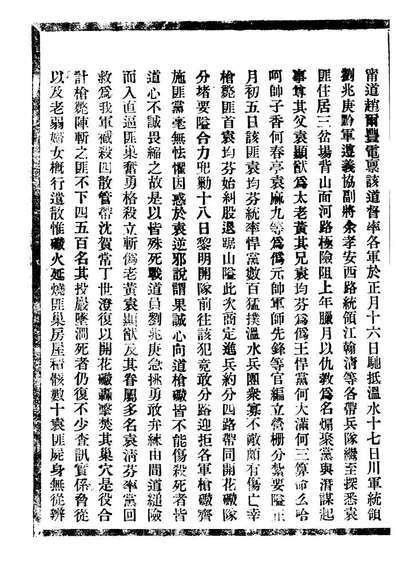 甯道趙爾豐電稟該道督率各軍於正月十六日馳抵溫水十七日川軍統領
劉兆庚黔軍遵義協副將余孝安西路統領江翰清等各帶兵隊繼至探悉袁
匪住居三岔場背山面河路極險阻上年臘月以仇教爲名煽聚黨與潛謀起
事尊其父袁顯猷爲太老黃其兄袁均芬爲僞王悍黨何大滿何三算命么哈
呵帥子香何春亭袁麻九等爲僞元帥軍師先鋒等官編立營柵分紮要隘正
月初五日該匪袁均芬統率悍黨數百猛撲溫水兵團衆寡不敵頗有傷亡幸
槍斃匪首袁均芬始糾股退踞山隘此次商定進兵約分四路帶同開花礮隊
分堵要隘合力兜勦十八日黎明開隊前往該犯竟敢分路迎拒各軍槍礮齊
施匪黨毫無怯懼因惑於袁逆邪說謂果誠心向道槍礮皆不能傷殺死者皆
道心不誠畏禍之故是以皆殊死戰道員劉兆庚急挑勇敢弁練由間道縋險
而入直逼匪巢奮勇格殺立斬僞老黃袁顯猷及其眷屬多名袁清芬率黨回
救爲我軍截殺四散管帶沈賀常丁世澄復以開花礮轟擊焚其巢穴是役合
計槍斃陣斬之匪不下四五百名其投嚴墜澗死者仍復不少查訊實係脅從
以及老弱婦女槪行遣散惟礮火延燒匪巢房屋積骸數十袁匪屍身無從辨